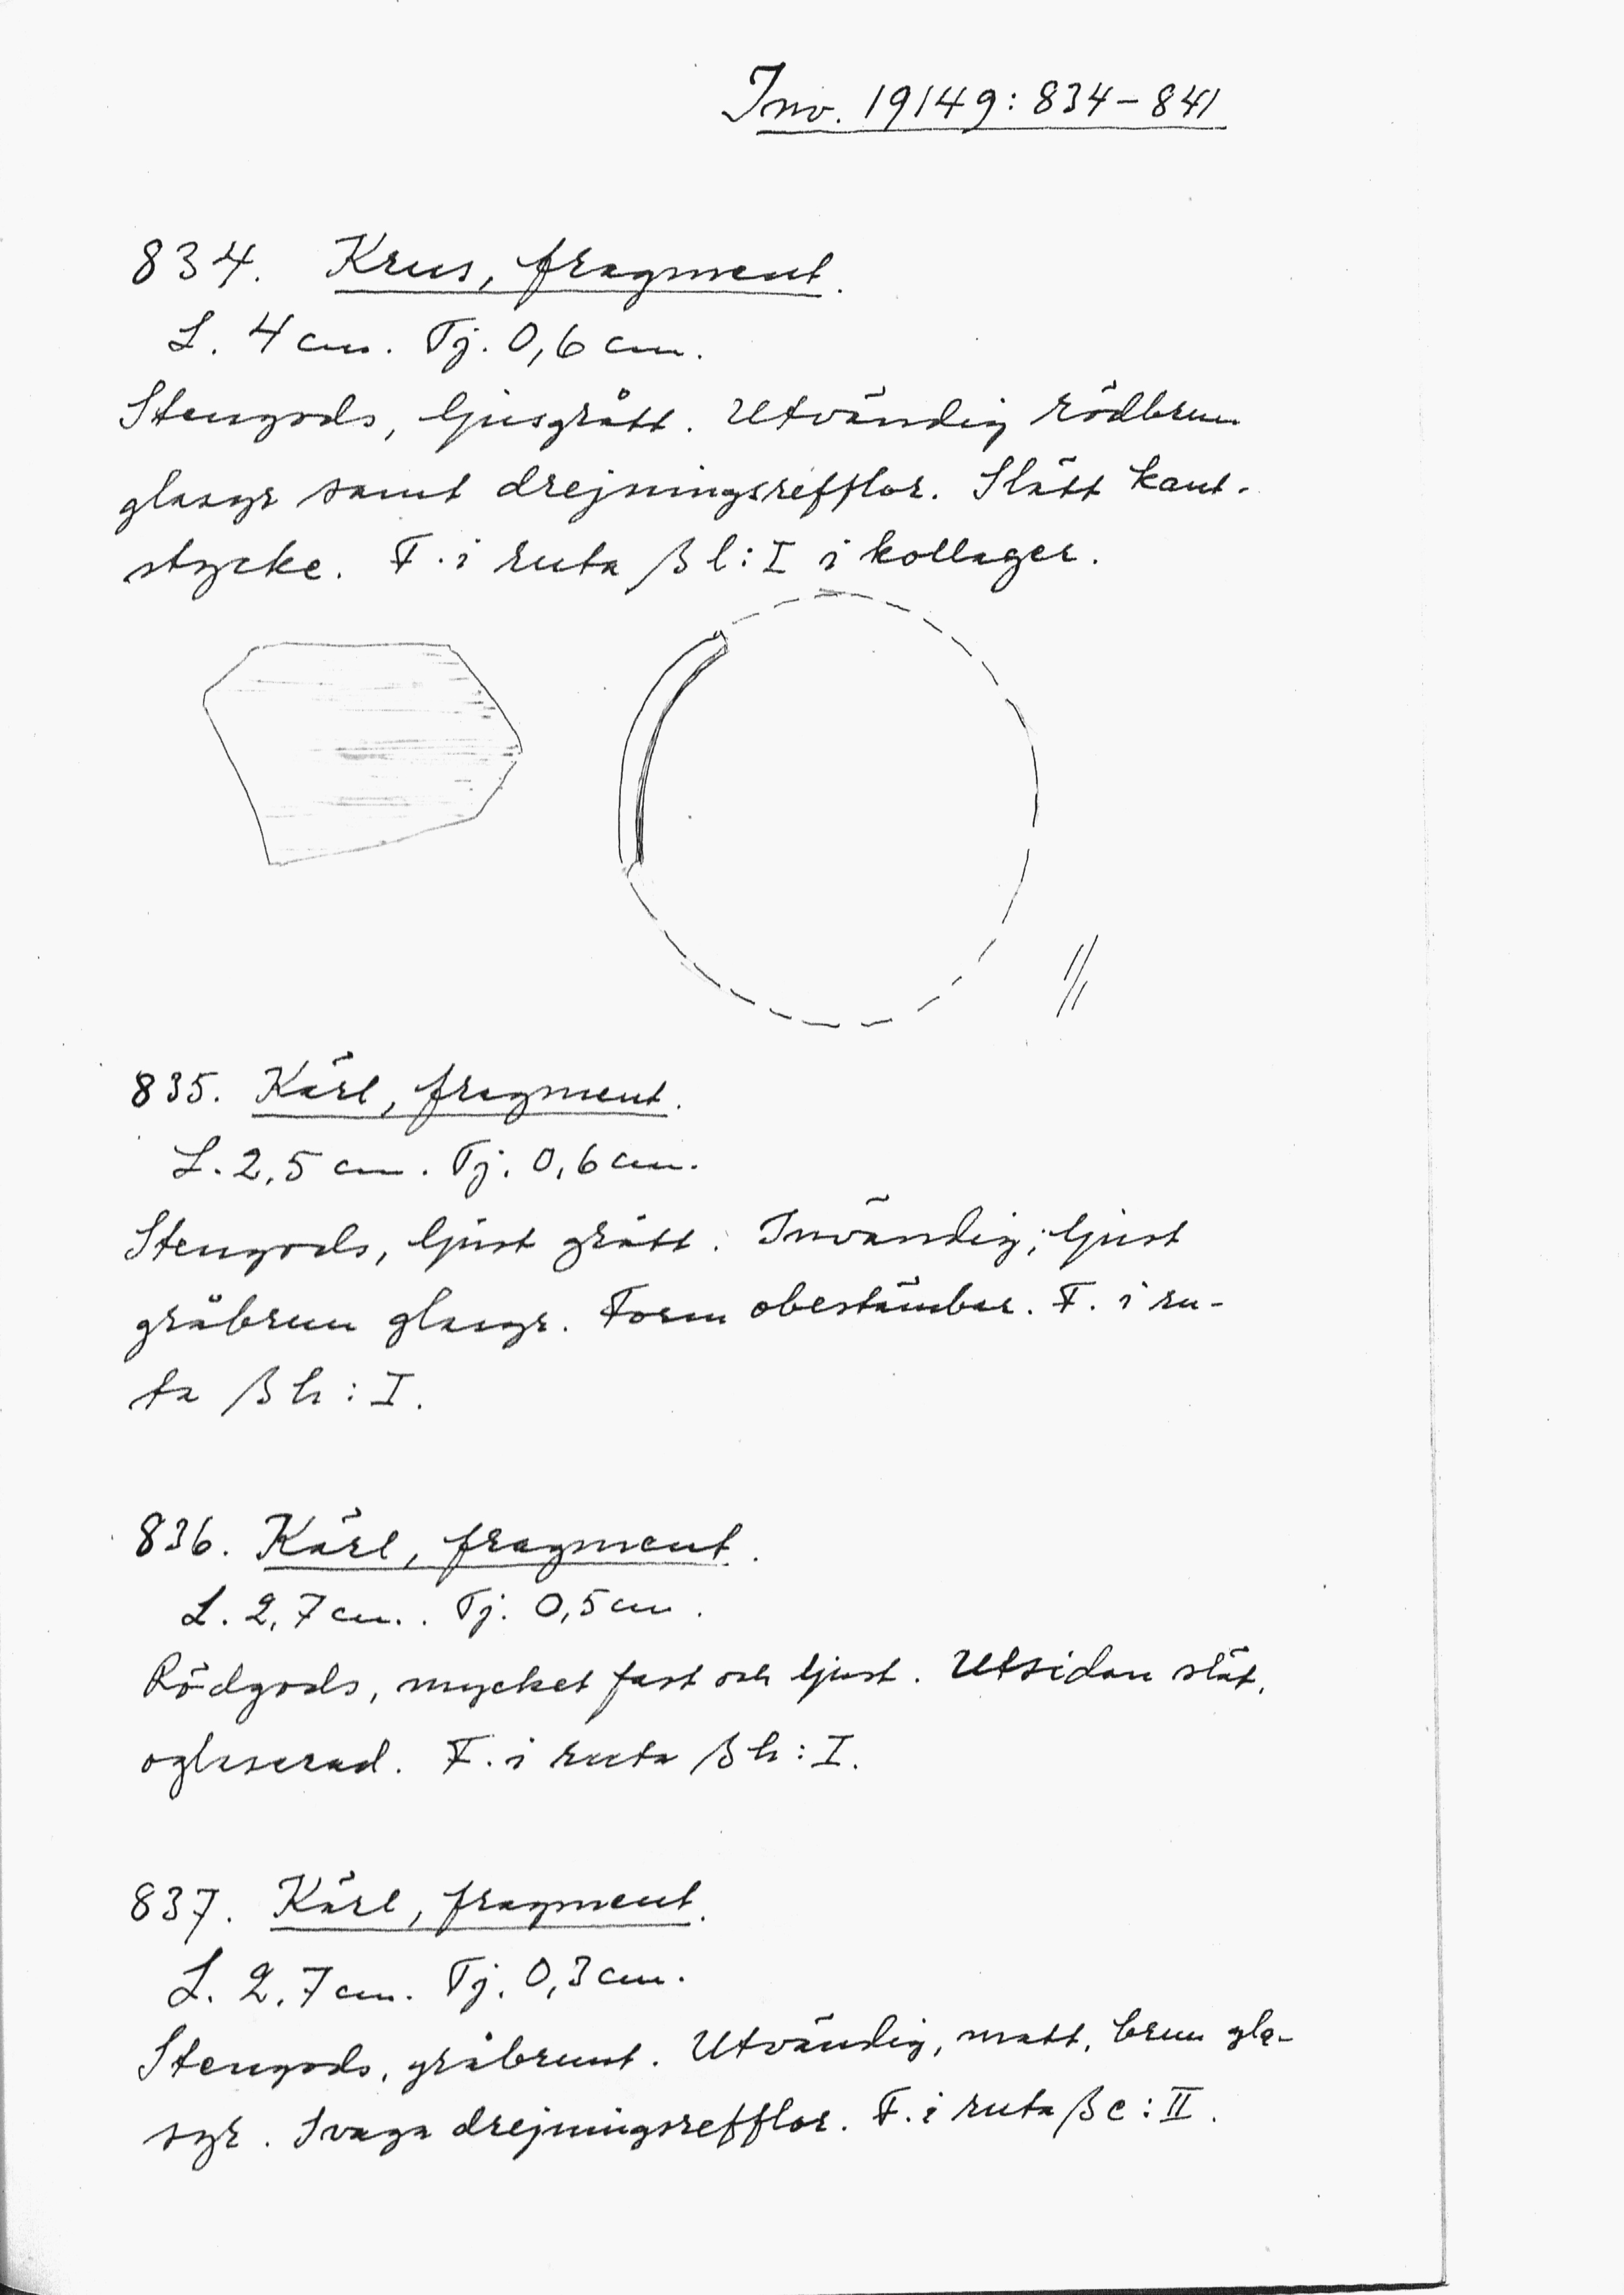 Inv. 19149:834-841
834. Krus, fragment.
L. 4 cm. Tj. 0,6 cm.
Stengods, ljusgrått. Utvändig rödbrun
glasyr samt drejningsrefflor. Slätt kant-
stycke. F. i ruta β l:I i kollager.
1/1
835. Kärl, fragment.
L. 2,5 cm. Tj. 0,6 cm.
Stengods, ljust grått. Invändig, ljust
gråbrun glasyr. Form obestämbar. F. i ru-
ta β h:I.
836. Kärl, fragment.
L. 2,7 cm. Tj. 0,5 cm.
Rödgods, mycket fast och ljust. Utsidan slät,
oglaserad. F. i ruta β h:I.
837. Kärl, fragment.
L. 2,7 cm. Tj. 0,3 cm.
Stengods, gråbrunt. Utvändig, matt, brun gla-
syr. Svaga drejningsrefflor. F. i ruta β c:II.